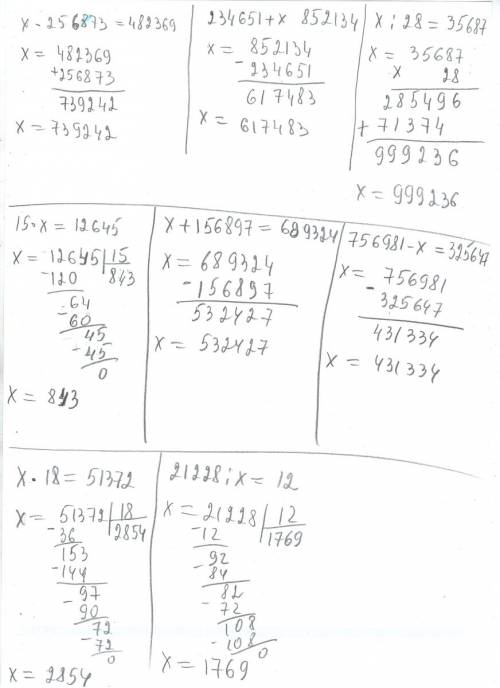 x - 256873 = 482369
x = 482369
+256873
739242
x = 739242
234651 + x 852134
x = 852134
- 234651
617483
x = 617483
x : 28 = 35687
x = 35687
x 28
285496
+ 71374
999236
x = 999236
15 · x = 12645
x = 12645 | 15
-120 843
64
- 60
45
- 45
0
x = 843
x + 156897 = 689324
x = 689324
- 156897
532427
x = 532427
756981 - x = 325647
x = 756981
- 325647
431334
x = 431334
x · 18 = 51372
x = 51372 | 18
- 36 2854
153
- 144
97
- 90
72
- 72
0
x = 2854
21228 : x = 12
x = 21228 | 12
- 12 1769
92
- 84
82
- 72
108
- 108
0
x = 1769